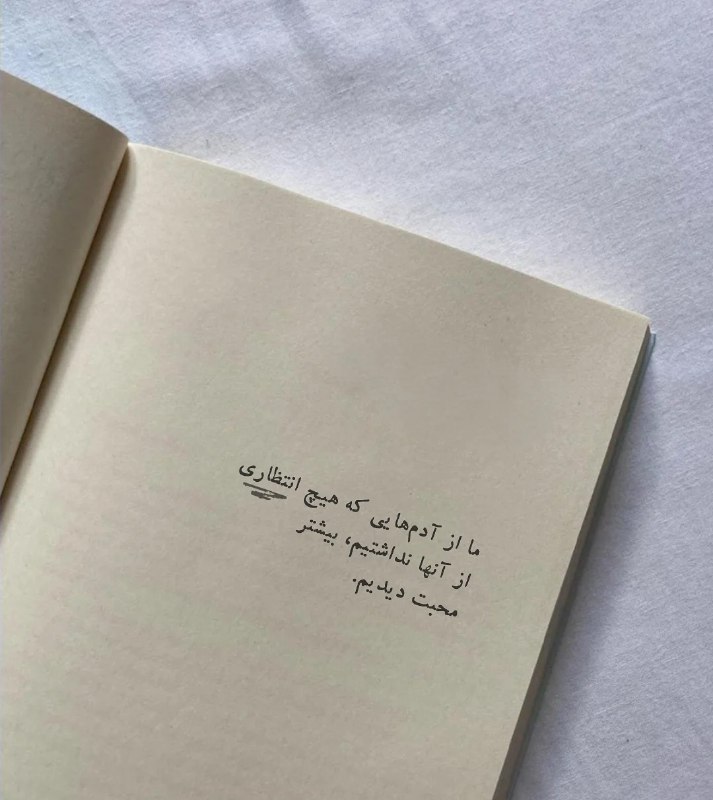 ما از آدم‌هایی که هیچ انتظاری
از آنها نداشتیم، بیشتر
محبت دیدیم.